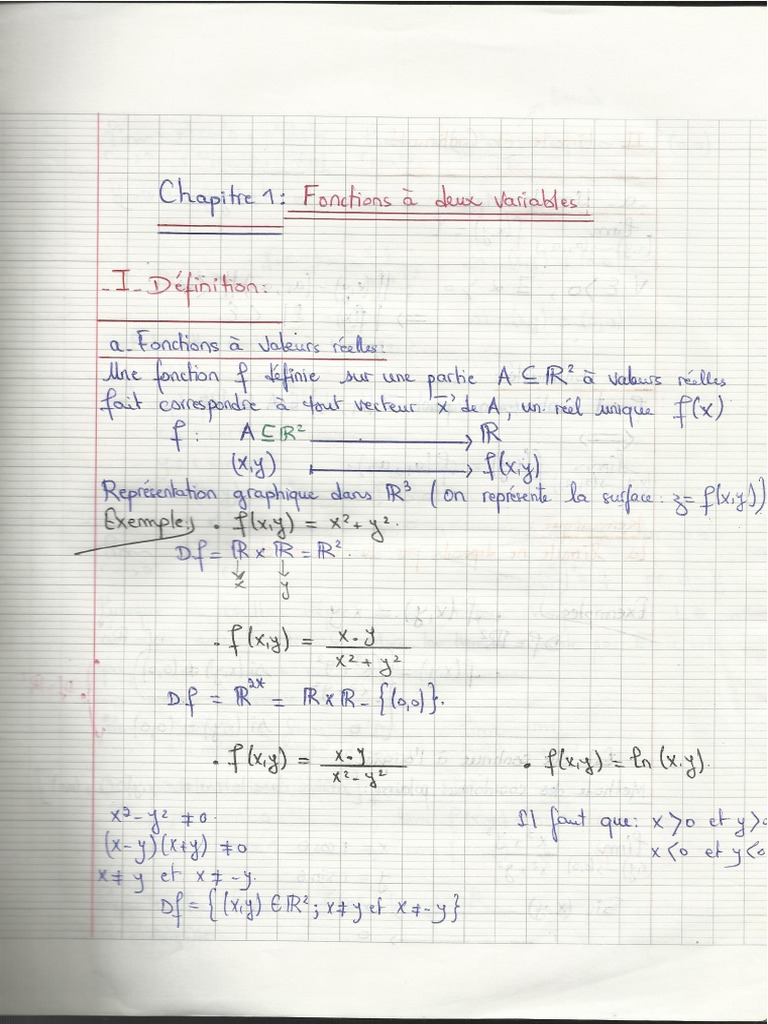 Chapitre 1: Fonctions à deux variables:
-I- Définition:
a- Fonctions à valeurs réelles:
Une fonction f définie sur une partie A ⊆ ℝ² à valeurs réelles
fait correspondre à tout vecteur x⃗ de A, un réel unique f(x)
f: A ⊆ ℝ² → ℝ
(x,y) ↦ f(x,y)
Représentation graphique dans ℝ³ (on représente la surface: z = f(x,y))
Exemples • f(x,y) = x² + y².
Df = ℝ × ℝ = ℝ².
↓ ↓
x y
• f(x,y) = (x-y)/(x² + y²)
Df = ℝ²* = ℝ × ℝ - {(0,0)}.
• f(x,y) = (x-y)/(x² - y²) • f(x,y) = ln(x.y).
x² - y² ≠ 0. Il faut que: x > 0 et y > 0
(x-y)(x+y) ≠ 0 x < 0 et y < 0
x ≠ y et x ≠ -y.
Df = {(x,y) ∈ ℝ²; x ≠ y et x ≠ -y}